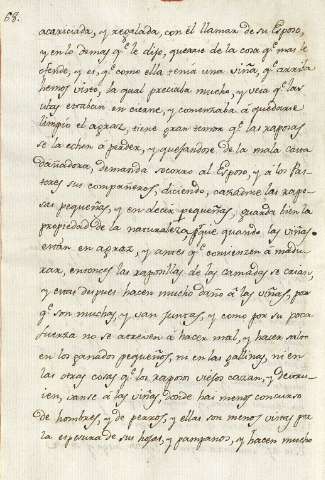 68.
acariciada, y regalada, con el llamar de su Esposo,
y en lo demas q.e le dijo, quexase de la cosa q.e mas le
ofende, y es, q.e como ella tenía una viña, q.e arriba
hemos visto, la qual preciaba mucho, y veía q.e las
ubas estaban en cierne, y comenzaba á quedarse
limpio el agraz, tiene gran temor q.e las raposas
se la echen á perder, y quejandose de la mala casta
dañadora, demanda socorro al Esposo, y a los Pas-
tores sus compañeros, diciendo, cazadme las rapo-
sas pequeñas, y en decir pequeñas, guarda bien la
propiedad de la naturaleza, porque quando las viñas
están en agraz, y antes q.e comienzen á madu-
rar, entonces las raposillas de las camadas se crian,
y estas despues hacen mucho daño á las viñas, por
q.e son muchas, y van juntas, y como por su poca
fuerza no se atreven á hacer mal, y hacer salto
en los ganados pequeños, ni en las gallinas, ni en
las otras cosas q.e los raposos viejos cazan, y
vanse á las viñas, donde hai menos concurso
de hombres, y de perros, y ellas son menos vistas por
la espesura de sus hojas, y pampanos, y hacen mucho